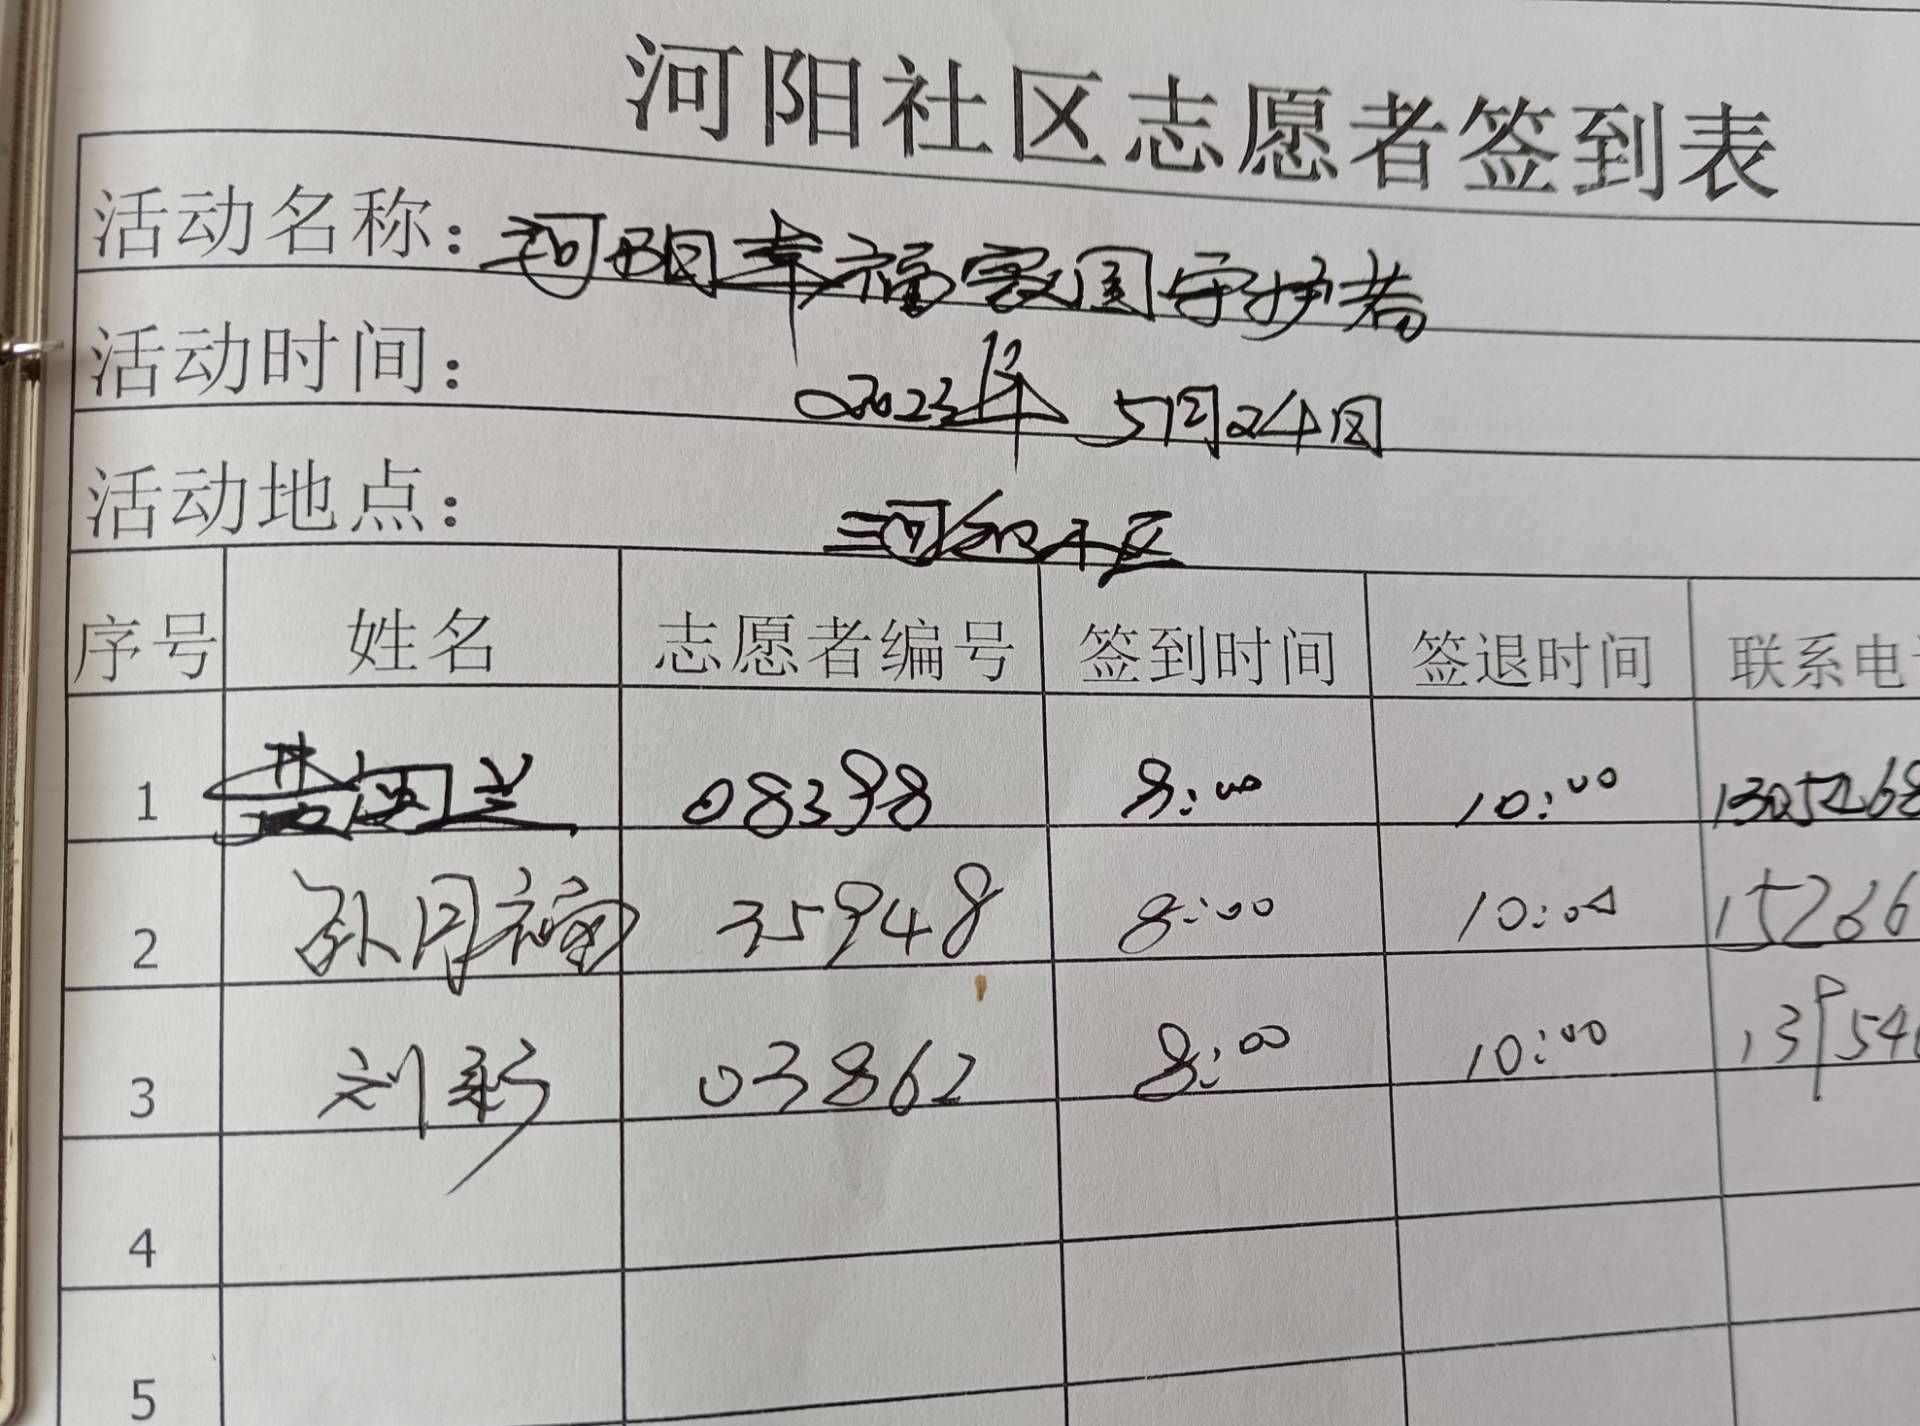 河阳社区志愿者签到表
活动名称：河阳幸福家园守护者
活动时间：2023年5月24日
活动地点：三河和小区
序号 姓名 志愿者编号 签到时间 签退时间 联系电
1 08398 8:00 10:00 1305268
2 孙月福 35948 8:00 10:00 15266
3 刘彩 03862 8:00 10:00 13954
4
5